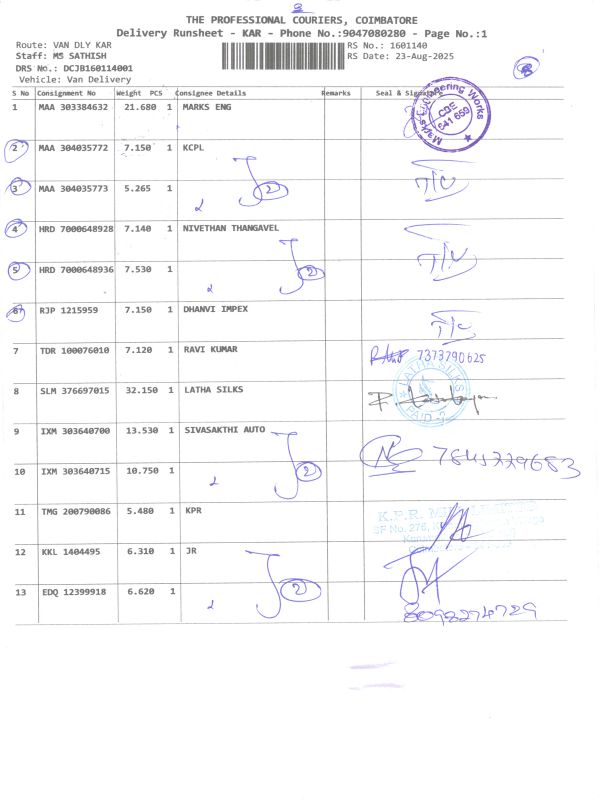 THE PROFESSIONAL COURIERS, COIMBATORE
Delivery Runsheet - KAR - Phone No.:9047080280 - Page No.:1
Route: VAN DLY KAR
RS No.: 1601140
Staff: MS SATHISH
RS Date: 23-Aug-2025
DRS No.: DCJB160114001
Vehicle: Van Delivery
S No Consignment No Weight PCS Consignee Details Remarks Seal & Signature
1 MAA 303384632 21.680 1 MARKS ENG
Marks Engineering Works
CBE
641 659
2 MAA 304035772 7.150 1 KCPL
3 MAA 304035773 5.265 1
2
4 HRD 7000648928 7.140 1 NIVETHAN THANGAVEL
5 HRD 7000648936 7.530 1
2
6 RJP 1215959 7.150 1 DHANVI IMPEX
7 TDR 100076010 7.120 1 RAVI KUMAR 7373790625
8 SLM 376697015 32.150 1 LATHA SILKS
LATHA SILKS
PAID
9 IXM 303640700 13.530 1 SIVASAKTHI AUTO
10 IXM 303640715 10.750 1
2
11 TMG 200790086 5.480 1 KPR
K.P.R.
SF No. 276,
12 KKL 1404495 6.310 1 JR
13 EDQ 12399918 6.620 1
2